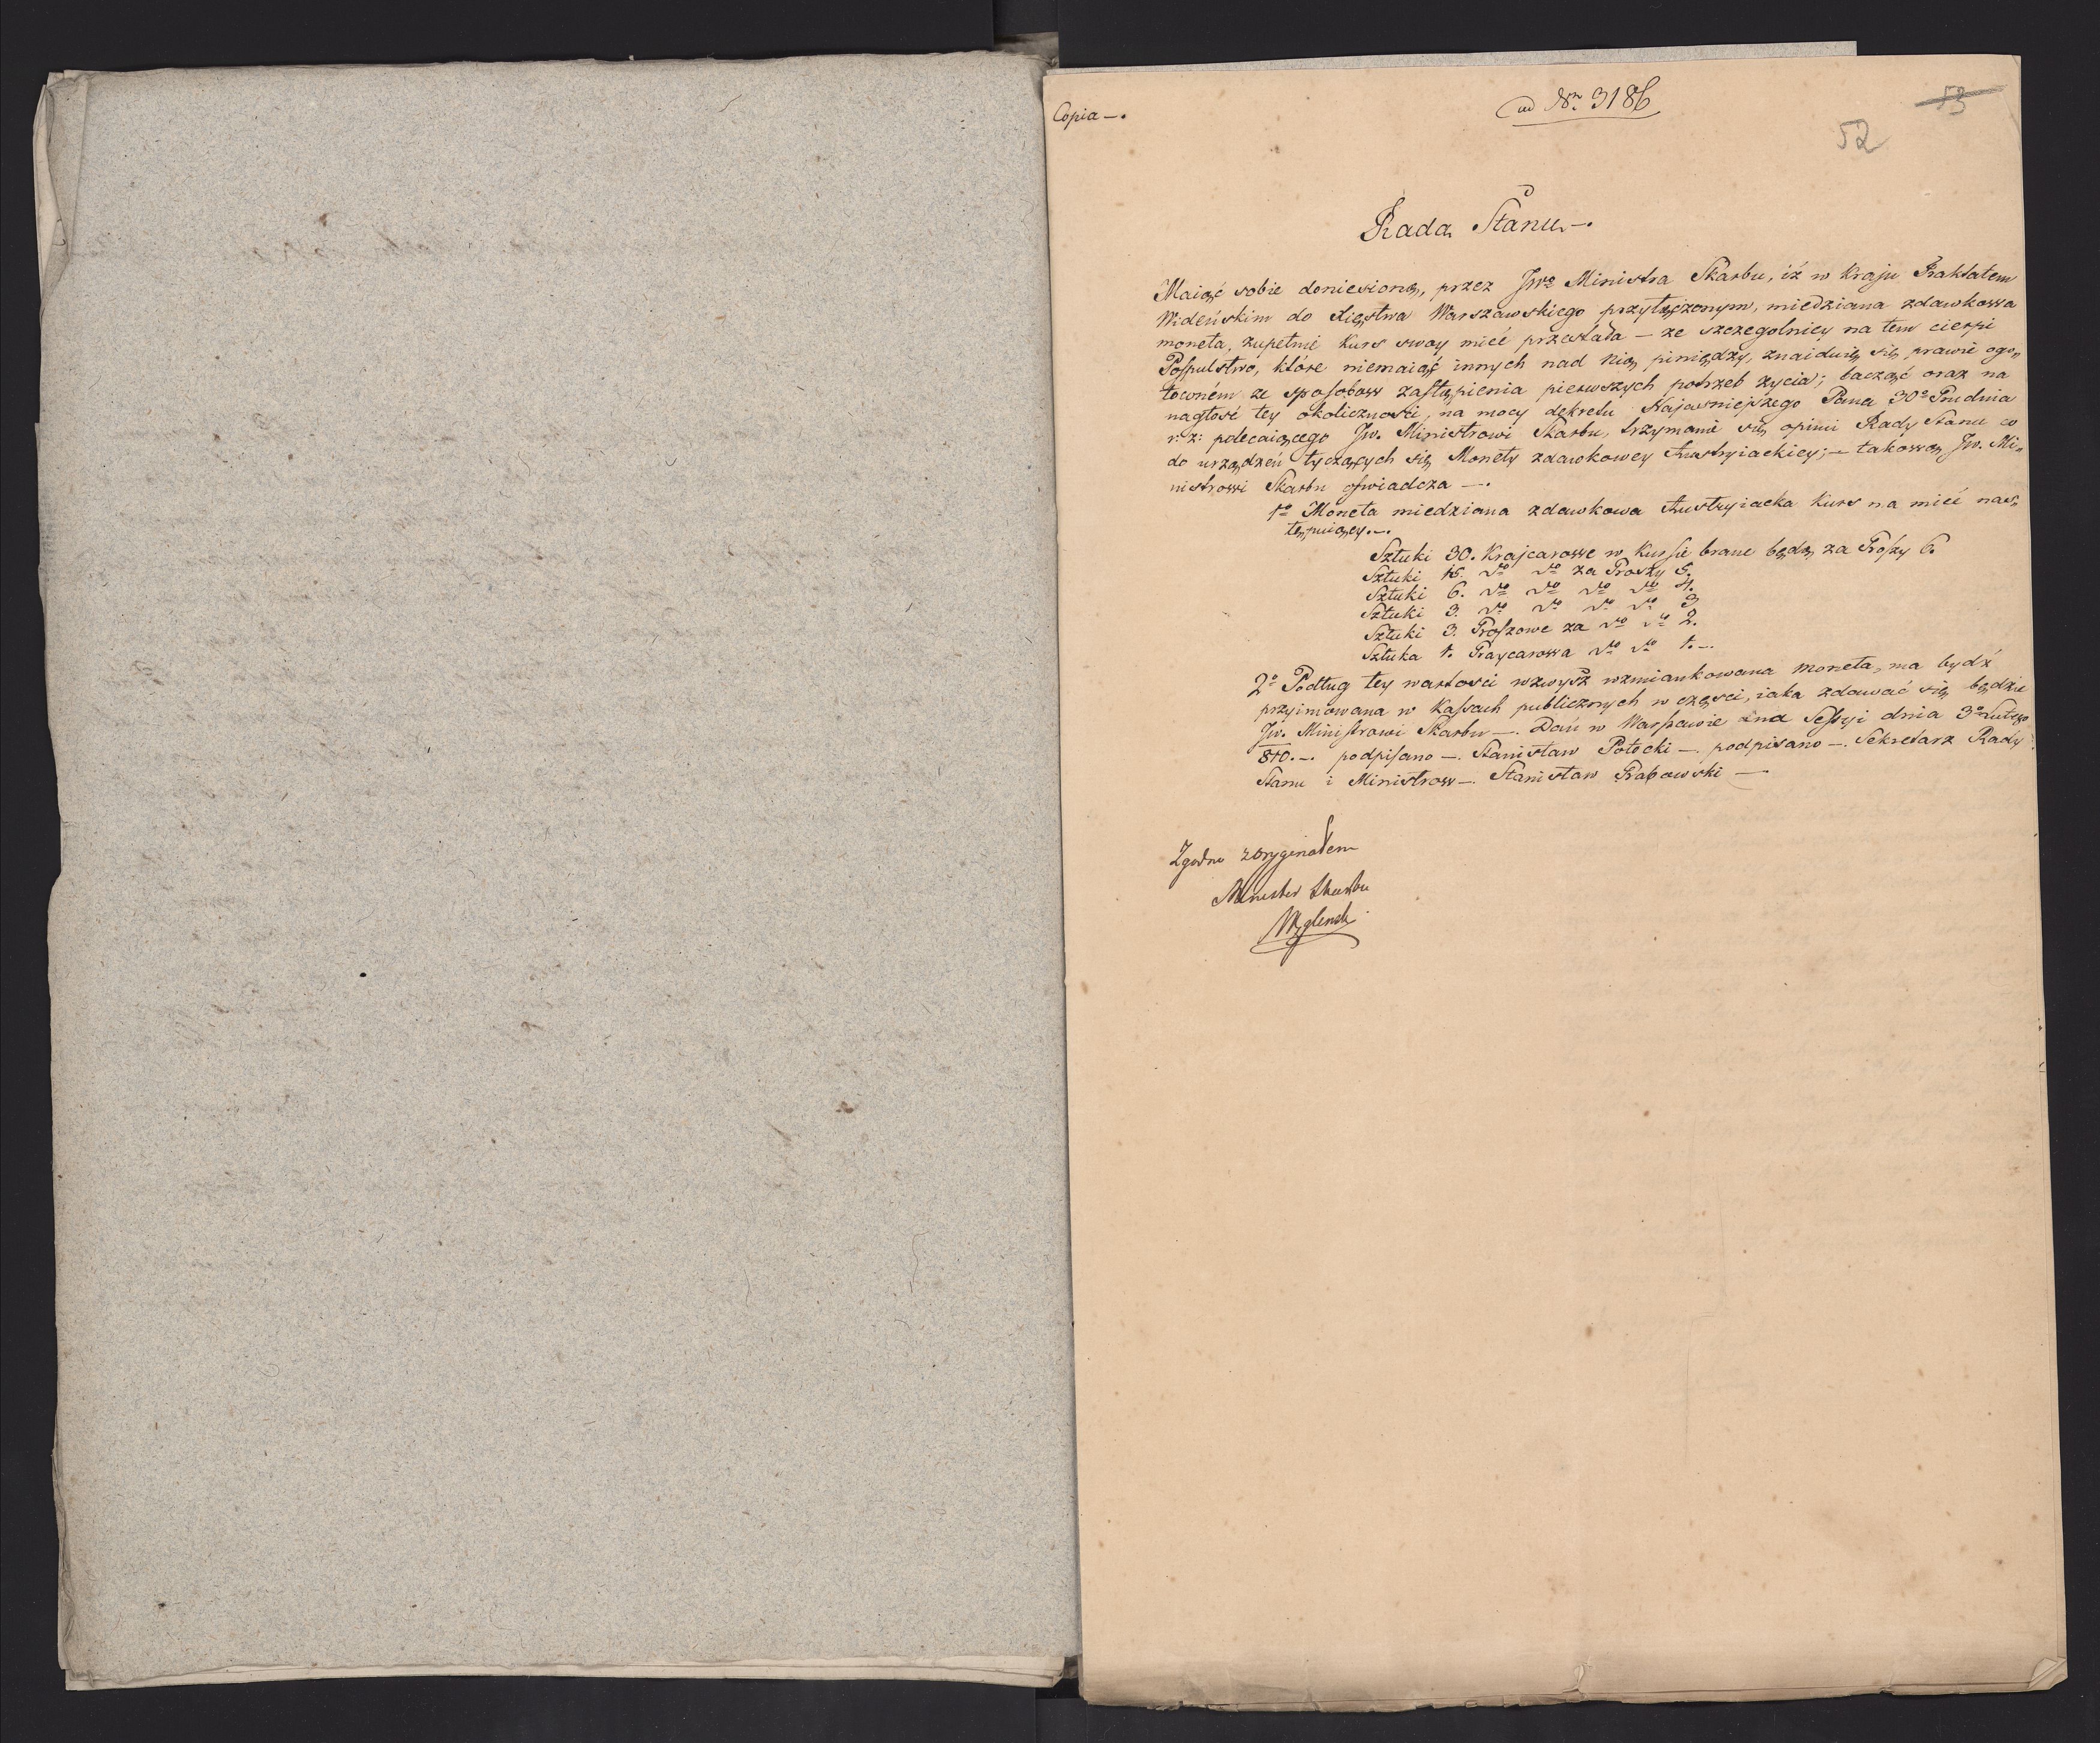 Copia —.
ad Nr. 3186
53
52
Rada Stanu —.
Maiąc sobie doniesioną, przez JWo Ministra Skarbu, iż w Kraju Traktatem
Wideńskim do Xięstwa Warszawskiego przyłączonym, miedziana zdawkowa
moneta, zupełnie kurs swoy mieć przestała — że szczegolniey na tem cierpi
Pospulstwo, które niemaiąć innych nad nią piniędzy, znaiduię się prawie ogo„
łoconém ze sposobow zastąpienia pierwszych potrzeb życia; bacząć oraz na
nagłość tey okoliczności, na mocy dekretu Najasniejszego Pana 30o Grudnia
r: z: polecaiącego JW. Ministrowi Skarbu, trzymanie się opinii Rady Stanu co
do urządzeń tyczących się Monety zdawkowey Austryiackiey; — takową JW. Mi„
nistrowi Skarbu oswiadcza —.
1o Moneta miedziana zdawkowa Austryiacka Kurs na mieć nas„
tępuiący. —.
Sztuki 30. Krajcarowe w Kursie brane będą za Groszy 6.
Sztuki 15. do do za Groszy 5.
Sztuki 6. do do do do 4.
Sztuki 3. do do do do 3
Sztuki 3. Groszowe za do do 2.
Sztuka 1. Graycarowa do do 1. —.
2o Podług tey wartości wzwysz wzmiankowana moneta, ma bydź
przyimowana w Kassach publicznych w części, iaka zdawać się będzie
JW. Ministrowi Skarbu —. Dań w Warszawie na Sessyi dnia 3o Lutego
810. —. podpisano —. Stanisław Potocki —. podpisano —. Sekretarz Rady
Stanu i Ministrow —. Stanisław Grabowski —.
Zgodno z Oryginałem
Minister Skarbu
Węglenski